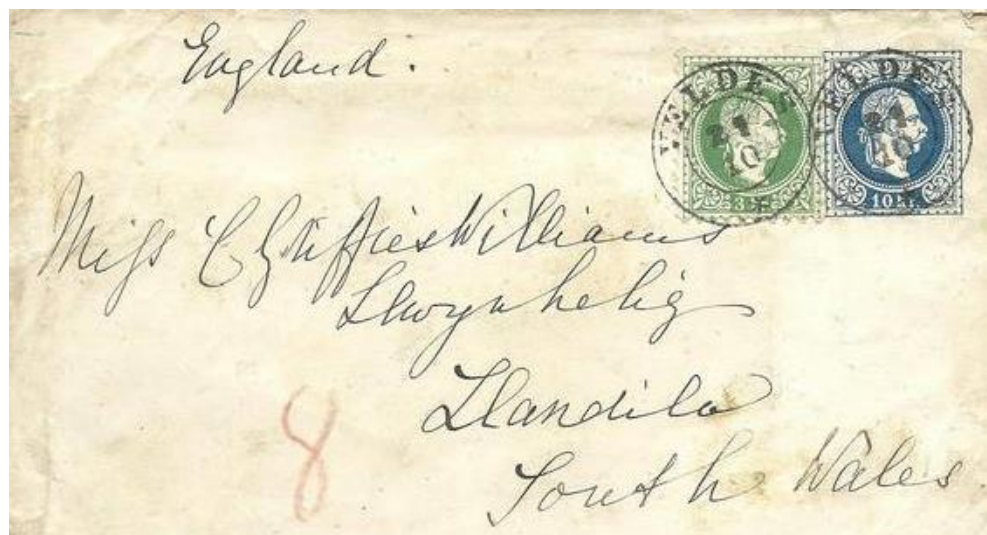 England.
VELDES
21
10
3 kr.
VELDES
21
10
10 kr.
Miss C Williams
Llwynhelig
Llandilo
South Wales
8